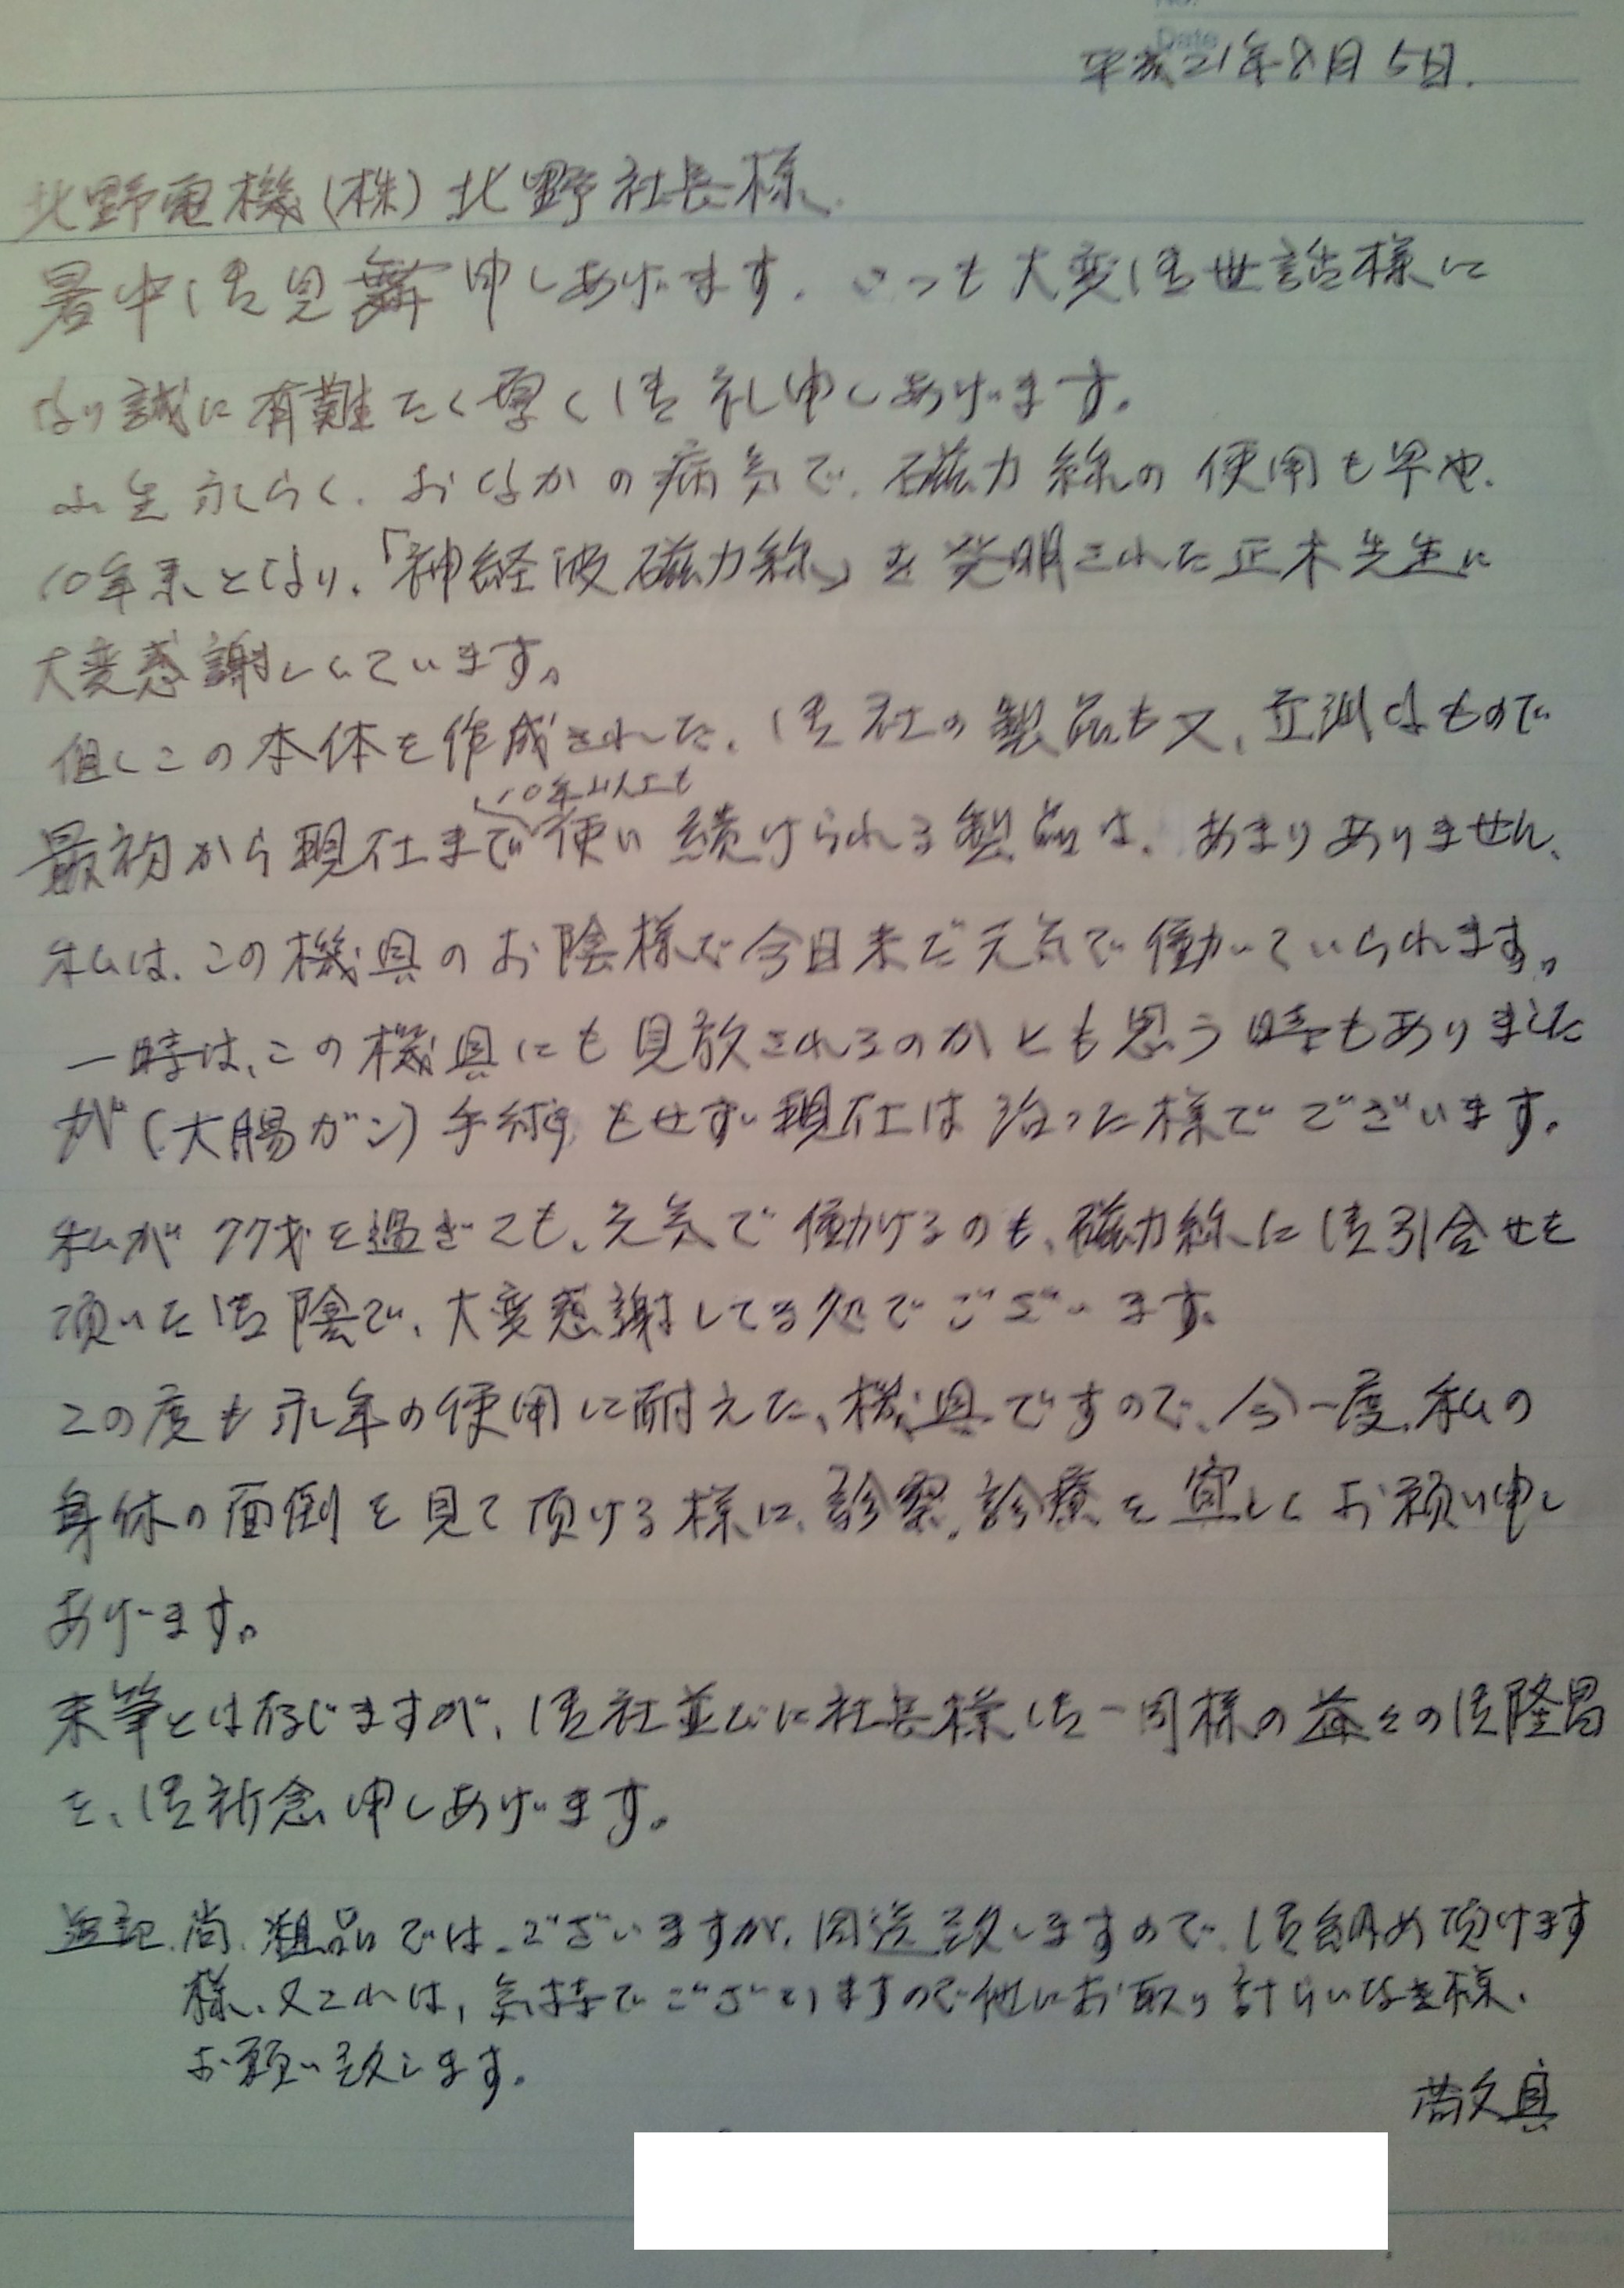 No.
Date
平成21年8月5日.
北野電機(株)北野社長様.
暑中御見舞申しあげます. いつも大変御世話様に
なり誠に有難たく厚く御礼申しあげます。
小生永らく、おなかの病気で、磁力線の使用も早や、
10年来となり、「神経波磁力線」を発明された正木先生に
大変感謝しています。
但しこの本体を作成された、御社の製品も又、立派なもので
10年以上も
最初から現在まで使い続けられる製品は、あまりありません、
私は、この機具のお陰様で今日未だ元気で働いていられます。
一時は、この機具にも見放されるのかとも思う時もありました
が(大腸ガン)手術もせず現在は治った様でございます。
私が77才を過ぎても、元気で働けるのも、磁力線に御引合せを
頂いた御陰で、大変感謝してる処でございます。
この度も永年の使用に耐えた、機具ですので、今一度、私の
身体の面倒を見て頂ける様に、診察、診療を宜しくお願い申し
あげます。
末筆とは存じますが、御社並びに社長様御一同様の益々の御隆昌
を、御祈念申しあげます。
追記、尚、粗品ではございますが、同送致しますので、御納め頂けます
様、又これは、気持でございますので他にお取り計らいなき様、
お願い致します。